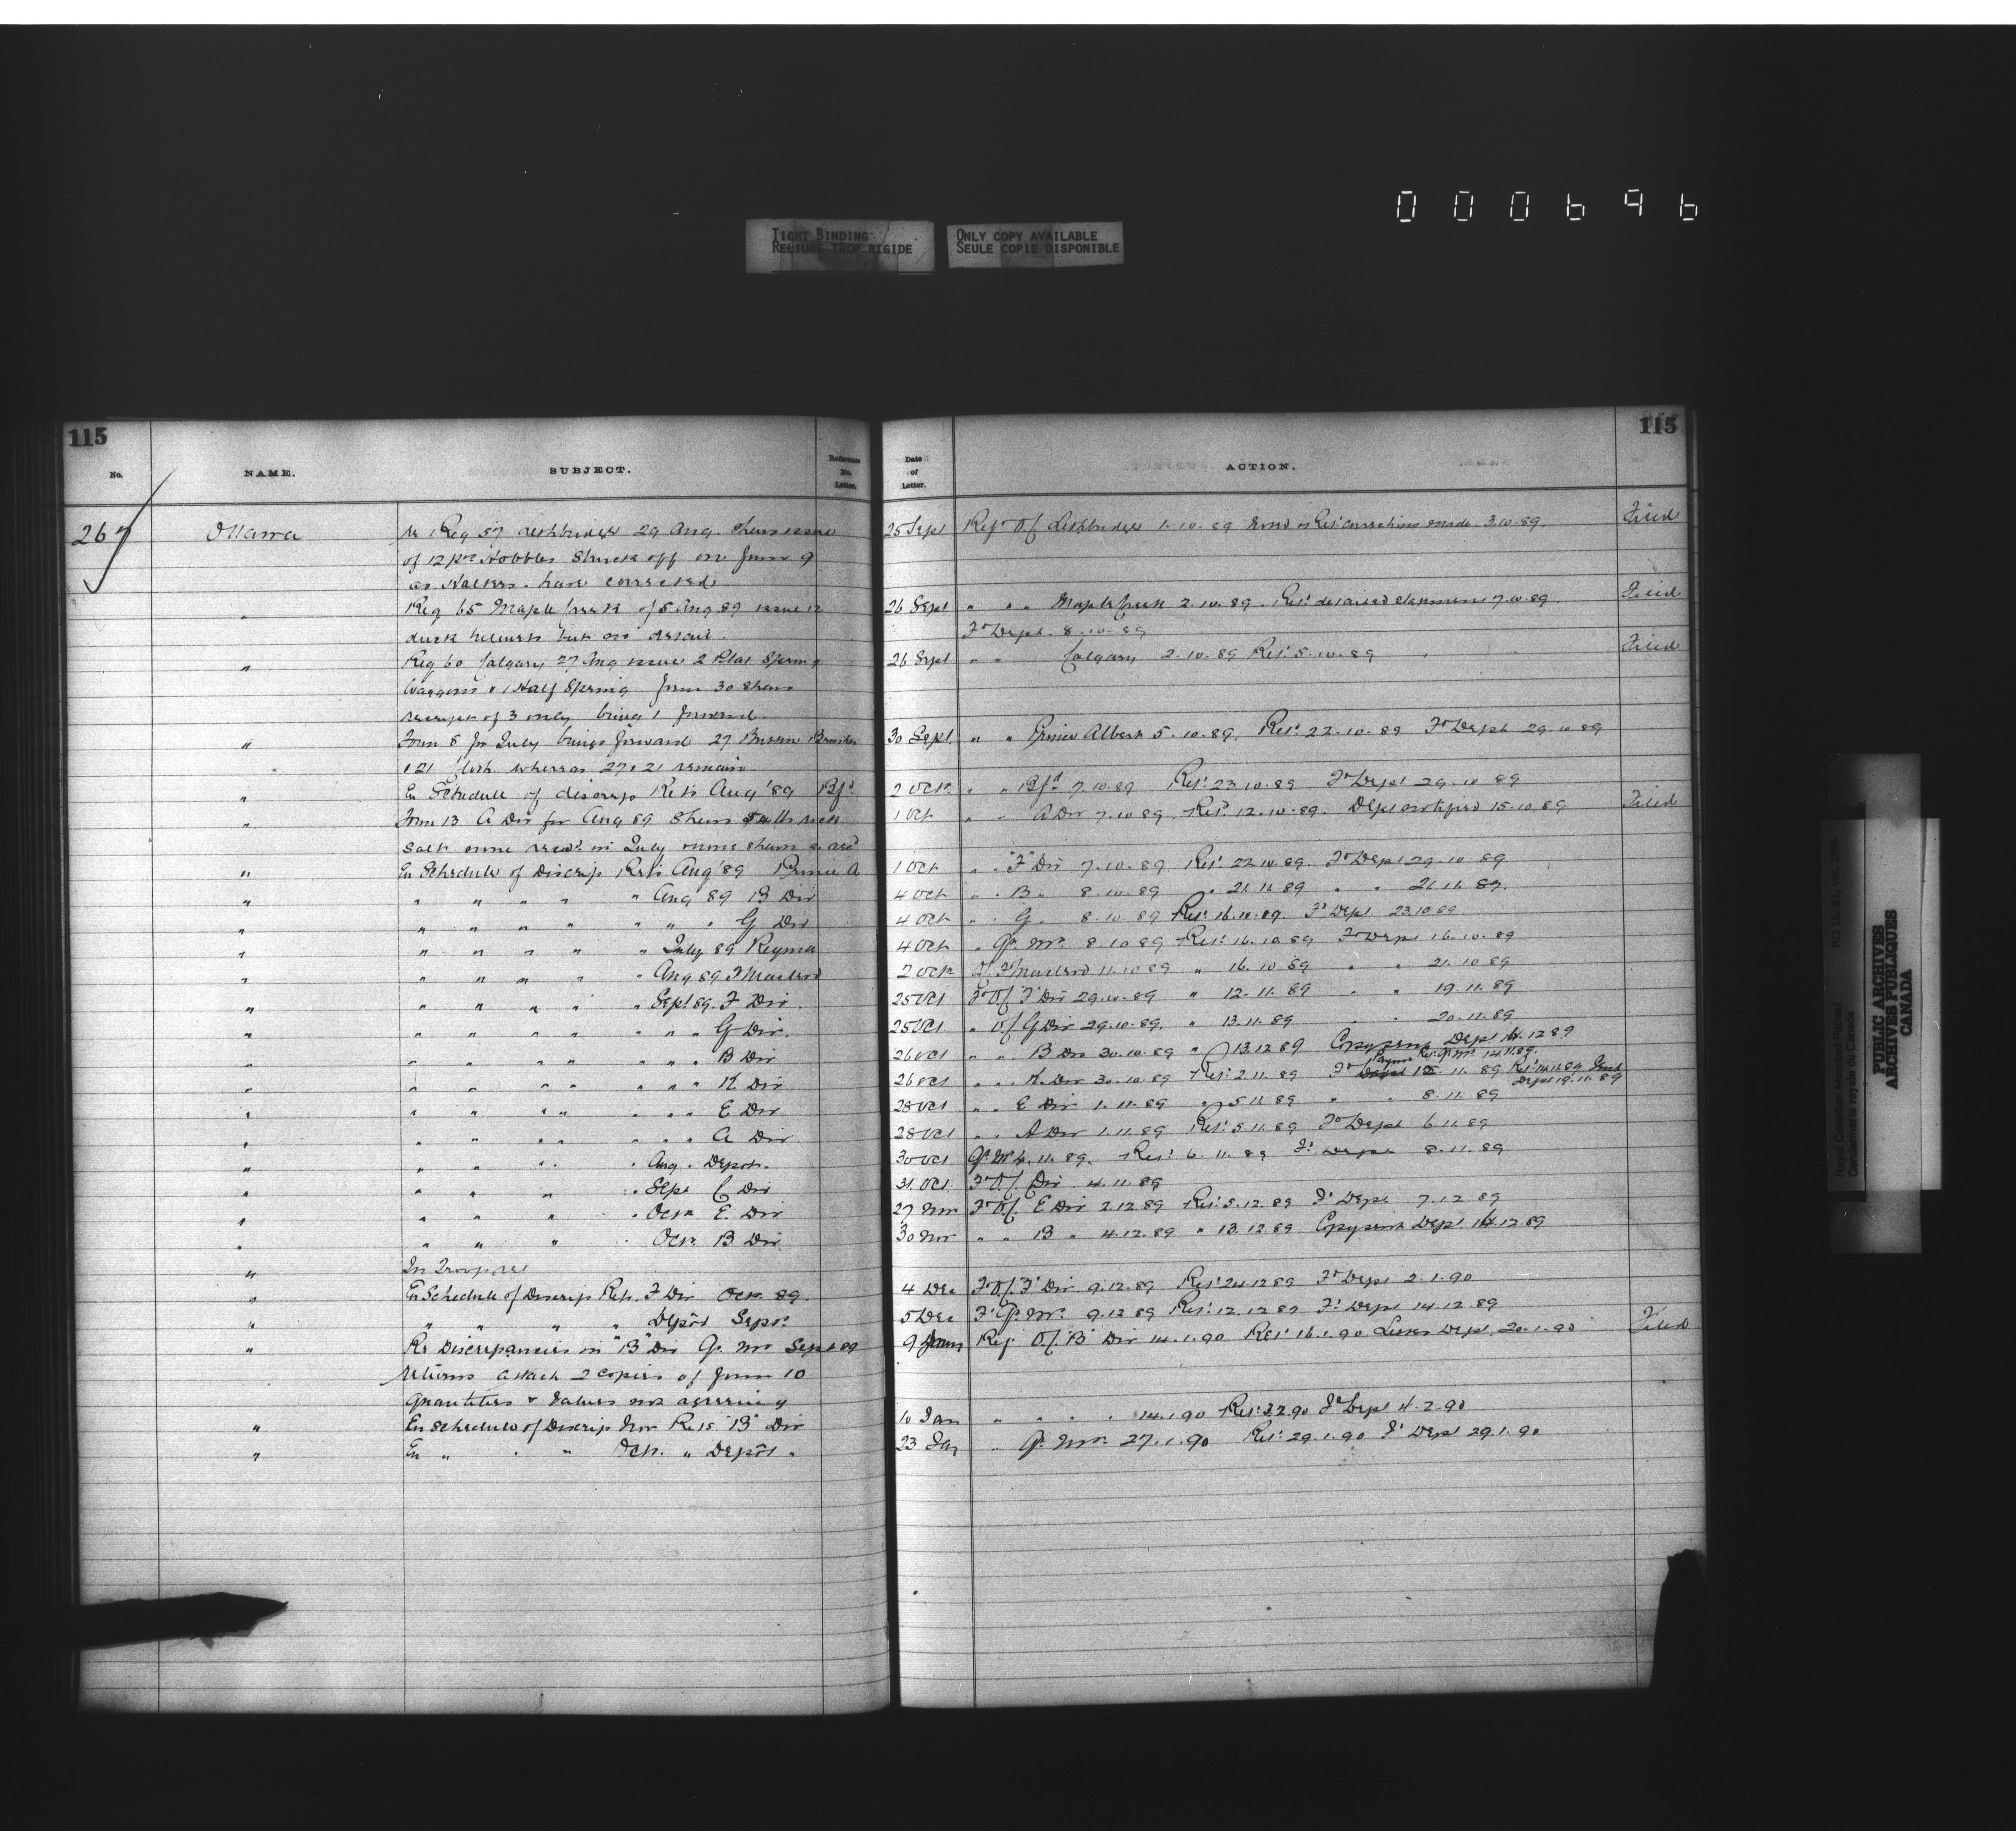 000696
TIGHT BINDING
RELIURE TROP RIGIDE
ONLY COPY AVAILABLE
SEULE COPIE DISPONIBLE
115
No.
NAME.
SUBJECT.
Reference No. Letter.
267 Ottawa
Re Req 57 Lethbridge 29 Aug. Shews issue
of 12 prs Hobbles Struck off on form 9
as Halters. have corrected
" Req 65 Maple Creek of 5 Aug 89 issue 12
duck
" Req 60 Calgary 27 Aug issue 2 Plat Spring
Waggons & 1 Half Spring form 30 Shews
receipt of 3 only being 1 forward
" Form 8 for July brings forward 27 Broom Brushes
& 21 Cloth whereas 27 & 21 remain
" En Schedule of discrep Rets Aug '89 Bfd
" Form 13 A Div for Aug 89 Shews
Salt none recd. in July none shewn
" En Schedule of Discrep Rets Aug '89 Prince A
" " " " " " Aug 89 B Div
" " " " " " " " G Div
" " " " " " July 89 Regina
" " " " " " Aug 89 F Macleod
" " " " " " Sept 89. F Div
" " " " " " " " G Div.
" " " " " " " " B Div
" " " " " " " " K Div
" " " " " " " " E Div
" " " " " " " " A Div
" " " " " Aug. Depot.
" " " " " Sept C Div
" " " " " Oct E. Div
" " " " Oct. B Div
"
" En Schedule of Discrep Rets. F Div Oct. 89.
" " " " " Depôt Sept.
" Re Discrepancies in "B" Div Qr. Mr Sept 89
returns attach 2 copies of form 10
quantities & values not agreeing
" En Schedule of Discrep Nov Rets "B" Div
" En " " " Oct. " Depôt "
115
Date of Letter.
ACTION.
25 Sept Ref O/C Lethbridge 1.10.89 Ret. corrections made 3.10.89. Filed
26 Sept " " " Maple Creek 2.10.89. Ret. detailed statement 7.10.89 Filed
Fd Dept. 8.10.89
26 Sept " " Calgary 2.10.89 Ret. 5.10.89 Filed
30 Sept. " " Prince Albert 5.10.89. Ret. 22.10.89 Fd Dept 29.10.89
2 Oct. " " Bfd 7.10.89 Ret. 23.10.89 Fd Dept 29.10.89
1 Oct " " A Div 7.10.89. Ret. 12.10.89. Dept notified 15.10.89 Filed
1 Oct " " "F" Div 7.10.89 Ret. 22.10.89. Fd Dept 29.10.89
4 Oct " " B " 8.10.89 " 21.11.89 " " 21.11.89.
4 Oct " " G " 8.10.89 Ret. 16.10.89. Fd Dept 23.10.89
4 Oct " Qr. Mr. 8.10.89 Ret. 16.10.89 Fd Dept 16.10.89
2 Oct O/C F Macleod 11.10.89 " 16.10.89 " " 21.10.89
25 Oct Fd O/C "F" Div 29.10.89 " 12.11.89 " " 19.11.89
25 Oct " O/C G Div 29.10.89. " 13.11.89 " " 20.11.89
26 Oct " " B Div 30.10.89 " 13.12.89 Copy sent Dept 14.12.89
26 Oct " " K Div 30.10.89 Ret. 2.11.89 Qr Mr 14.11.89. Sent
Dept 19.11.89
28 Oct " " E Div 1.11.89 " 5.11.89 " " 8.11.89
28 Oct " " A Div 1.11.89 Ret. 5.11.89 Fd Dept 6.11.89
30 Oct Qr. Mr 4.11.89. Ret. 6.11.89 Fd Dept 8.11.89
31 Oct Fd O/C Div 4.11.89
27 Nov Fd O/C E Div 2.12.89 Ret. 5.12.89 Fd Dept 7.12.89
30 Nov " " B " 4.12.89 " 13.12.89 Copy sent Dept. 14.12.89
4 Dec Fd O/C "F" Div 9.12.89 Ret. 24.12.89 Fd Dept 2.1.90
5 Dec Fd Qr. Mr. 9.12.89 Ret. 12.12.89 Fd Dept 14.12.89
9 Jany Ref O/C "B" Div 14.1.90 Ret 16.1.90 Letter Dept. 20.1.90 Filed
10 Jan " " " " 14.1.90 Ret. 3.2.90 Fd Dept 4.2.90
23 Jan " Qr. Mr. 27.1.90 Ret. 29.1.90 Fd Dept 29.1.90
PUBLIC ARCHIVES
ARCHIVES PUBLIQUES
CANADA